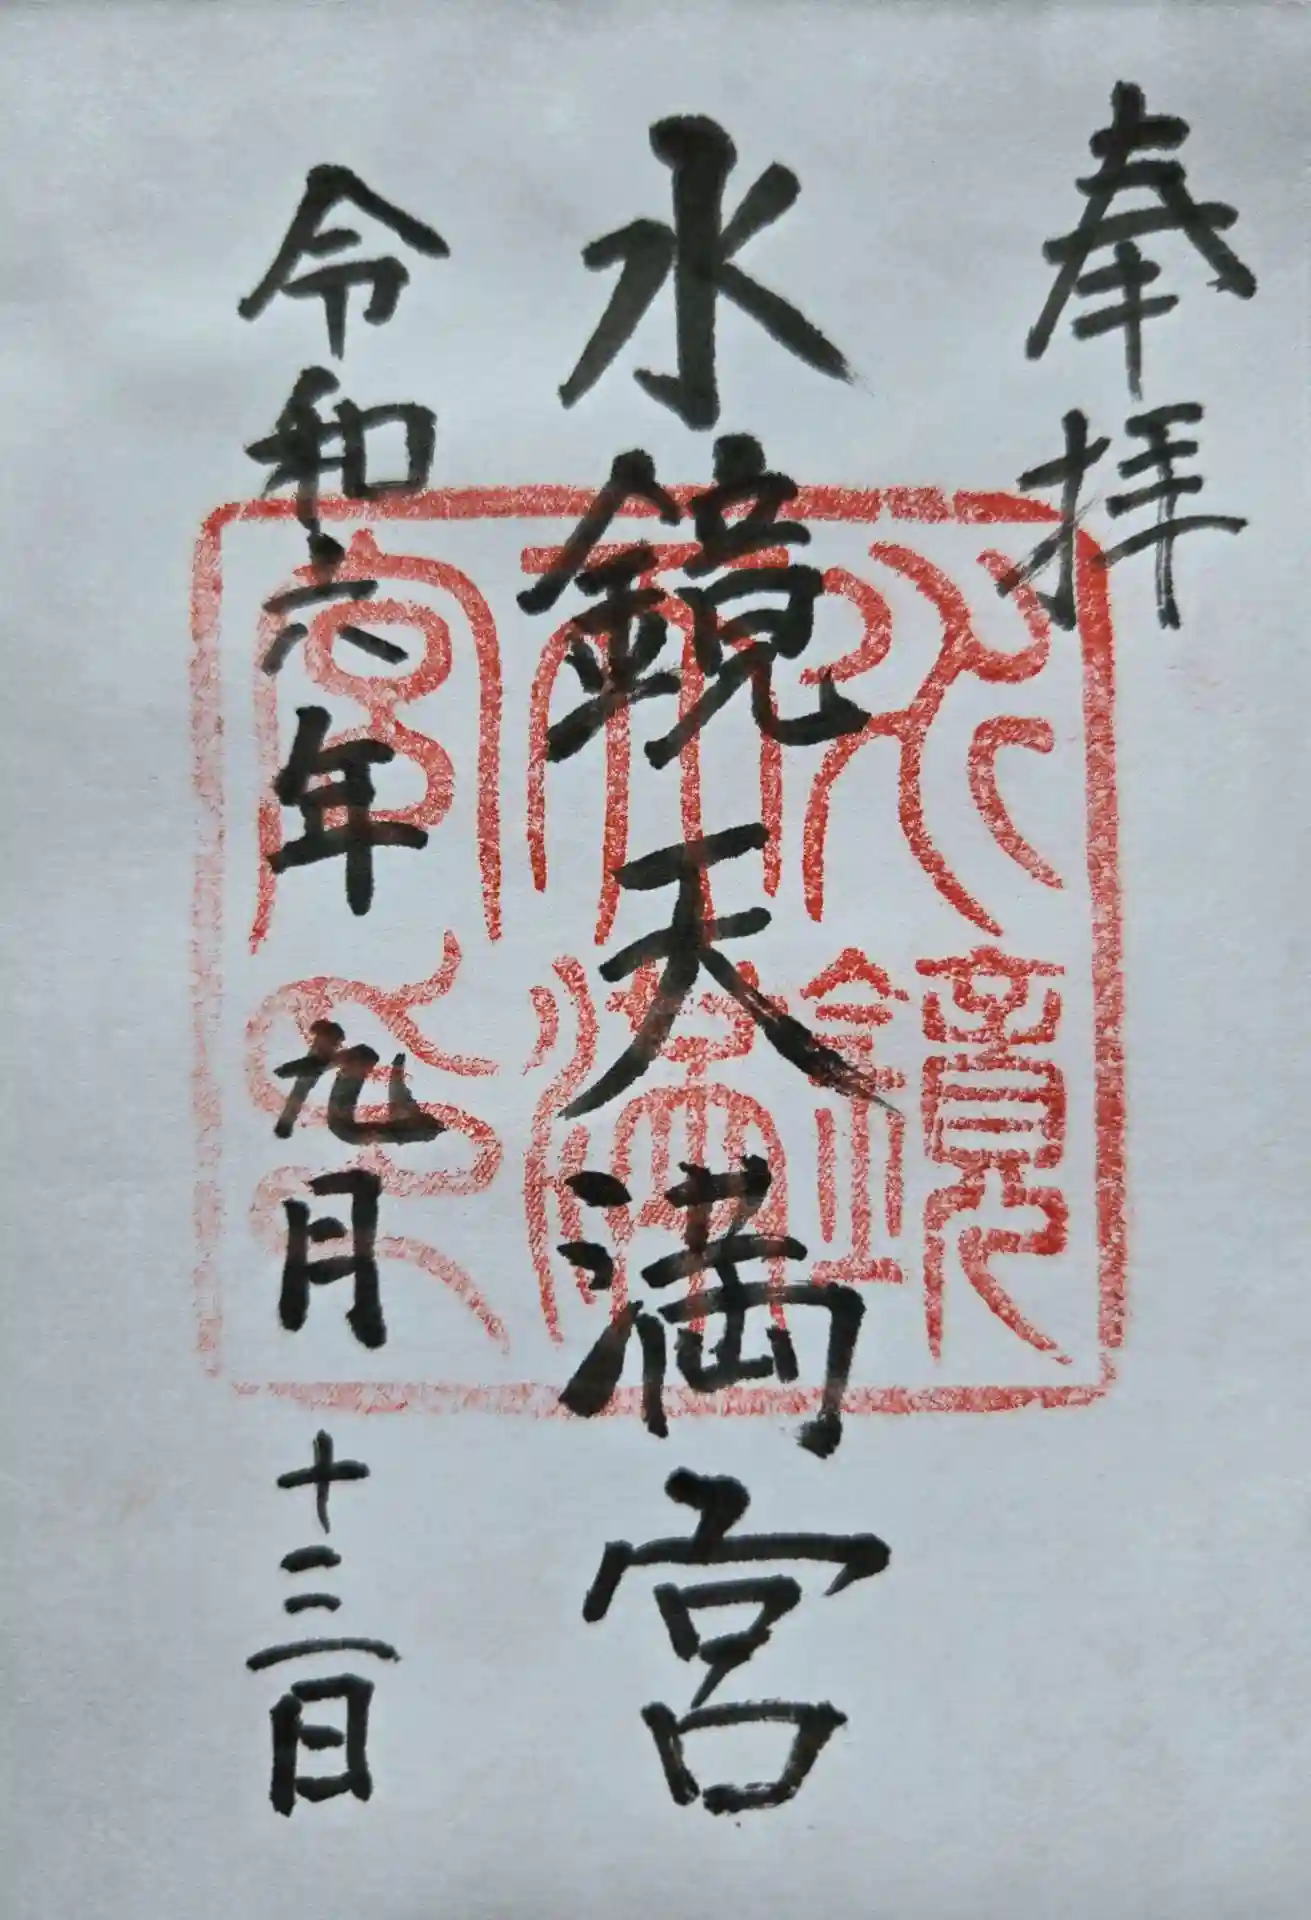 奉拝
水鏡天満宮
令和六年九月十三日
水鏡
天満
宮之